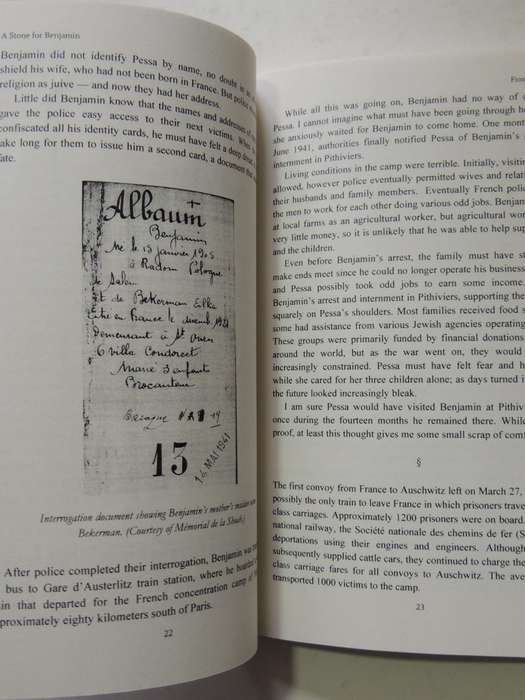 A Stone for Benjamin
Benjamin did not identify Pessa by name, no doubt in an
shield his wife, who had not been born in France. But police
religion as juive — and now they had her address.
Little did Benjamin know that the names and addresses of
gave the police easy access to their next victims. When
confiscated all his identity cards, he must have felt a deep dread,
ake long for them to issue him a second card, a document that
fate.
Albaum
Benjamin
Né le 13 janvier 1905
à Radom Pologne
de
et de Bekerman Elka
Entré en France le 1921
Demeurant à St Ouen
6 villa Condorcet
Marié 3 enfants
Brocanteur
13
14 MAI 1941
Interrogation document showing Benjamin's mother's maiden name
Bekerman. (Courtesy of Mémorial de la Shoah)
After police completed their interrogation, Benjamin was
bus to Gare d'Austerlitz train station, where he boarded
in that departed for the French concentration camp of
pproximately eighty kilometers south of Paris.
22
From
While all this was going on, Benjamin had no way of
Pessa. I cannot imagine what must have been going through
she anxiously waited for Benjamin to come home. One mont
June 1941, authorities finally notified Pessa of Benjamin's
internment in Pithiviers.
Living conditions in the camp were terrible. Initially, visitor
allowed, however police eventually permitted wives and relative
their husbands and family members. Eventually French police
the men to work for each other doing various odd jobs. Benjam
at local farms as an agricultural worker, but agricultural wor
very little money, so it is unlikely that he was able to help sup
and the children.
Even before Benjamin's arrest, the family must have st
make ends meet since he could no longer operate his business
and Pessa possibly took odd jobs to earn some income.
Benjamin's arrest and internment in Pithiviers, supporting the
squarely on Pessa's shoulders. Most families received food s
some had assistance from various Jewish agencies operating
These groups were primarily funded by financial donations
around the world, but as the war went on, they would
increasingly constrained. Pessa must have felt fear and h
while she cared for her three children alone; as days turned i
the future looked increasingly bleak.
I am sure Pessa would have visited Benjamin at Pithiv
once during the fourteen months he remained there. While
proof, at least this thought gives me some small scrap of comf
§
The first convoy from France to Auschwitz left on March 27,
possibly the only train to leave France in which prisoners travel
class carriages. Approximately 1200 prisoners were on board.
national railway, the Société nationale des chemins de fer (S
deportations using their engines and engineers. Although
subsequently supplied cattle cars, they continued to charge the
class carriage fares for all convoys to Auschwitz. The ave
transported 1000 victims to the camp.
23